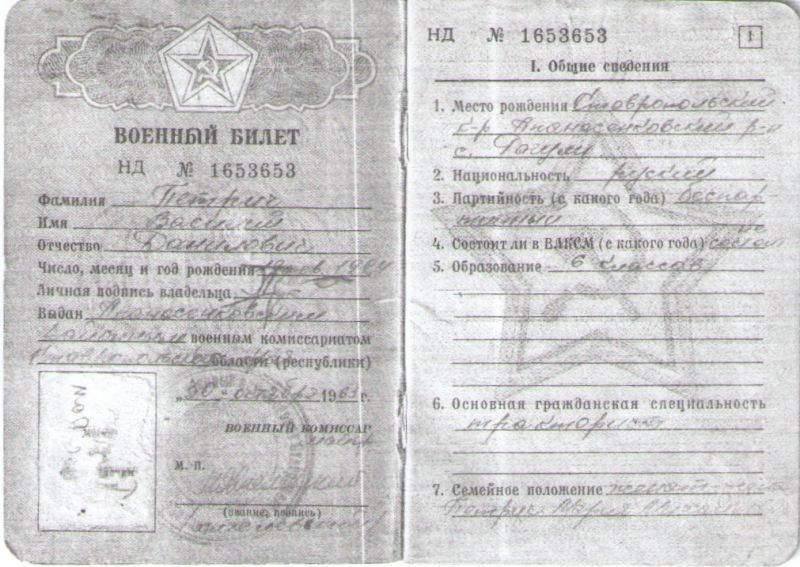 ВОЕННЫЙ БИЛЕТ
НД № 1653653
Фамилия Петрич
Имя Василий
Отчество Данилович
Число, месяц и год рождения
Личная подпись владельца
Выдан Апанасенковским
районным военным комиссариатом
Области (республики)
„30“ октября 1963 г.
ВОЕННЫЙ КОМИССАР
М. П.
(звание, подпись)
НД № 1653653
1
I. Общие сведения
1. Место рождения Ставропольский
к-р Апанасенковский р-н
с.
2. Национальность русский
3. Партийность (с какого года) беспар-
тийный
4. Состоит ли в ВЛКСМ (с какого года) не
5. Образование 6 классов
6. Основная гражданская специальность
тракторист
7. Семейное положение женат, жена
Петрич Мария